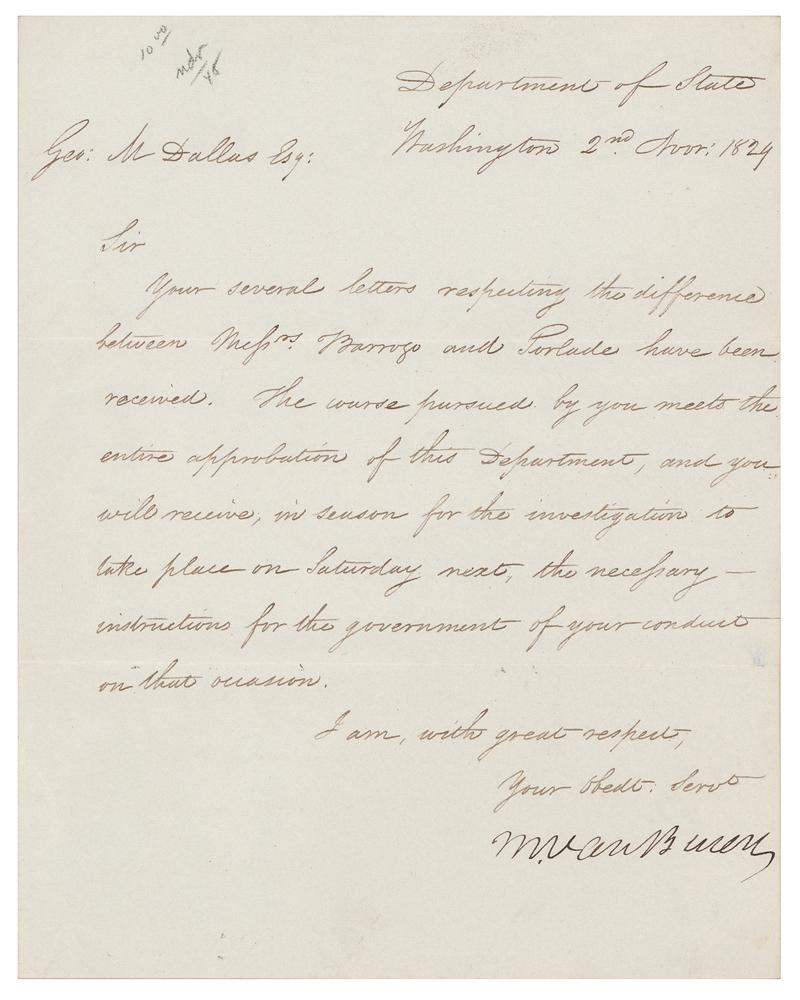 10 00
Department of State
Geo: M Dallas Esq:
Washington 2nd. Novr: 1829
Sir
Your several letters respecting the difference
between Messrs. Barrozo and Torlade have been
received. The course pursued by you meets the
entire approbation of this Department, and you
will receive, in season for the investigation to
take place on Saturday next, the necessary —
instructions for the government of your conduct
on that occasion.
I am, with great respect,
Your Obedt: Servt
M. Van Buren